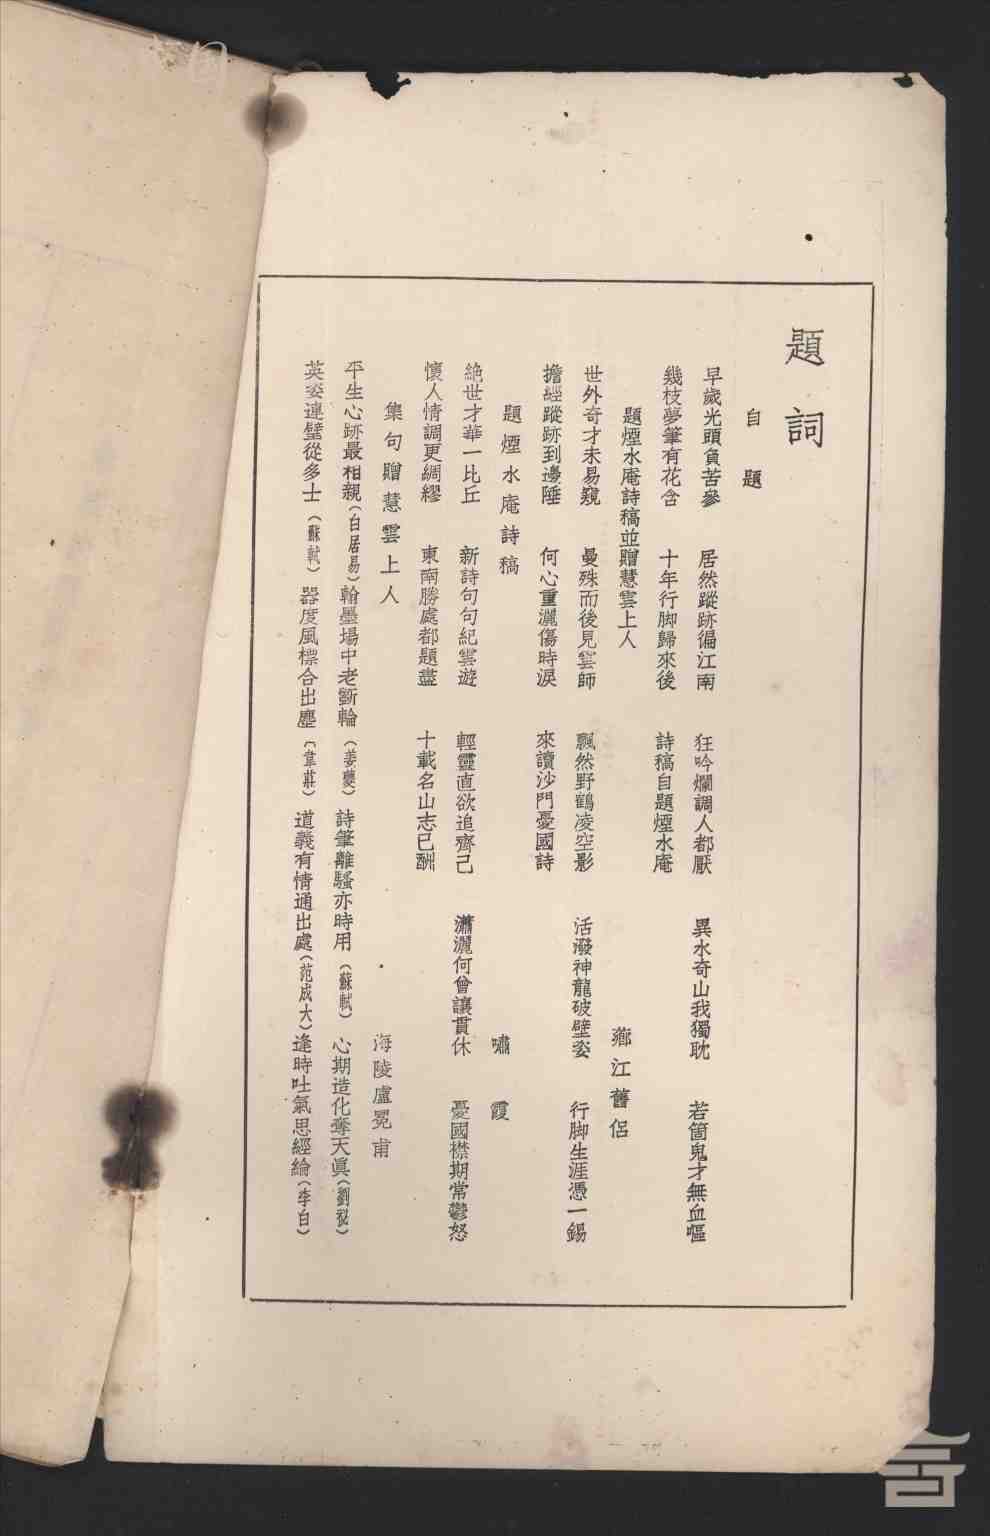 題詞
自題
早歲光頭負苦參　居然蹤跡徧江南　狂吟爛調人都厭　異水奇山我獨耽　若箇鬼才無血嘔
幾枝夢筆有花含　十年行脚歸來後　詩稿自題煙水庵
題煙水庵詩稿並贈慧雲上人　薌江舊侶
世外奇才未易窺　曼殊而後見雲師　飄然野鶴凌空影　活潑神龍破壁姿　行脚生涯憑一錫
擔經蹤跡到邊陲　何心重灑傷時淚　來讀沙門憂國詩
題煙水庵詩稿　嘯霞
絕世才華一比丘　新詩句句紀雲遊　輕靈直欲追齊己　瀟灑何曾讓貫休　憂國襟期常鬱怒
懷人情調更綢繆　東南勝處都題盡　十載名山志已酬
集句贈慧雲上人　海陵盧冕甫
平生心跡最相親（白居易）翰墨場中老斵輪（姜夔）詩筆離騷亦時用（蘇軾）心期造化奪天眞（劉
英姿連璧從多士（蘇軾）器度風標合出塵（韋莊）道義有情通出處（范成大）逢時吐氣思經綸（李白）